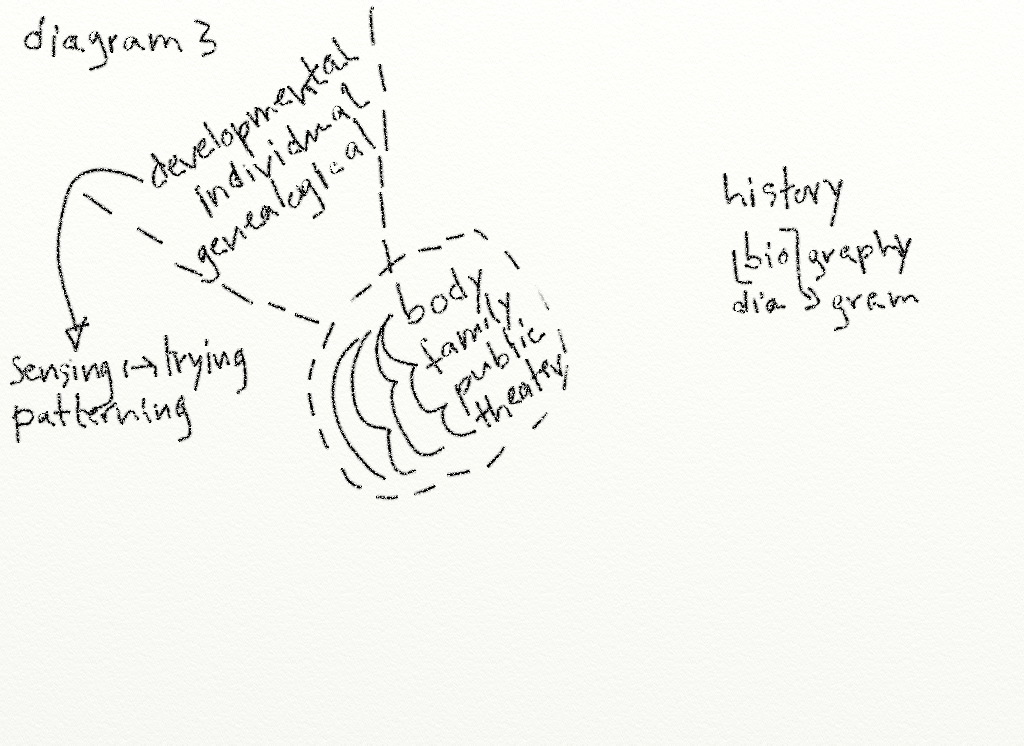 diagram 3
developmental
individual
genealogical
history
[bio]graphy
dia → gram
body
family
public
theater
sensing ↔ trying
patterning